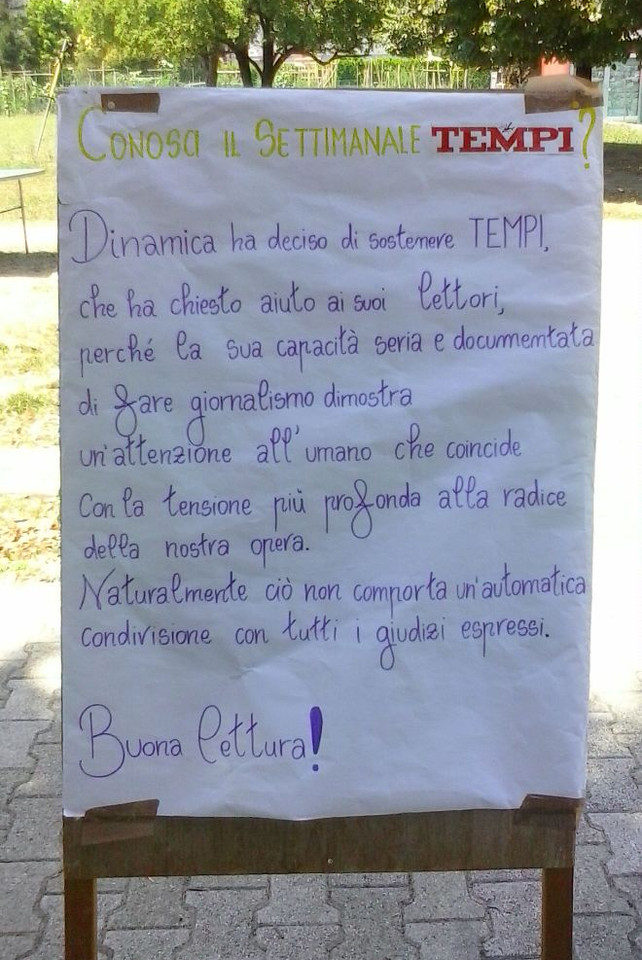 CONOSCI IL SETTIMANALE TEMPI?
Dinamica ha deciso di sostenere TEMPI,
che ha chiesto aiuto ai suoi lettori,
perché la sua capacità seria e documentata
di fare giornalismo dimostra
un'attenzione all'umano che coincide
con la tensione più profonda alla radice
della nostra opera.
Naturalmente ciò non comporta un'automatica
condivisione con tutti i giudizi espressi.
Buona lettura!